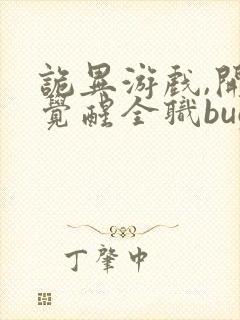 詭異游戲,開
覺醒全職bu
丁肇中